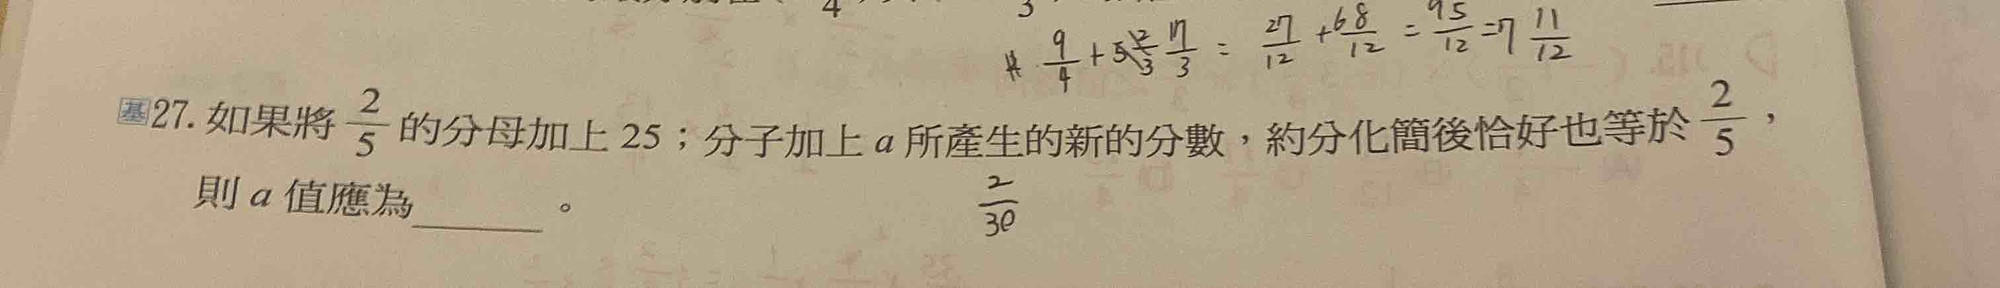 4
3
# 9/4 + 5 2/3 17/3 = 27/12 + 68/12 = 95/12 = 7 11/12
基27. 如果將 2/5 的分母加上 25；分子加上 a 所產生的新的分數，約分化簡後恰好也等於 2/5，
則 a 值應為______。
2/30